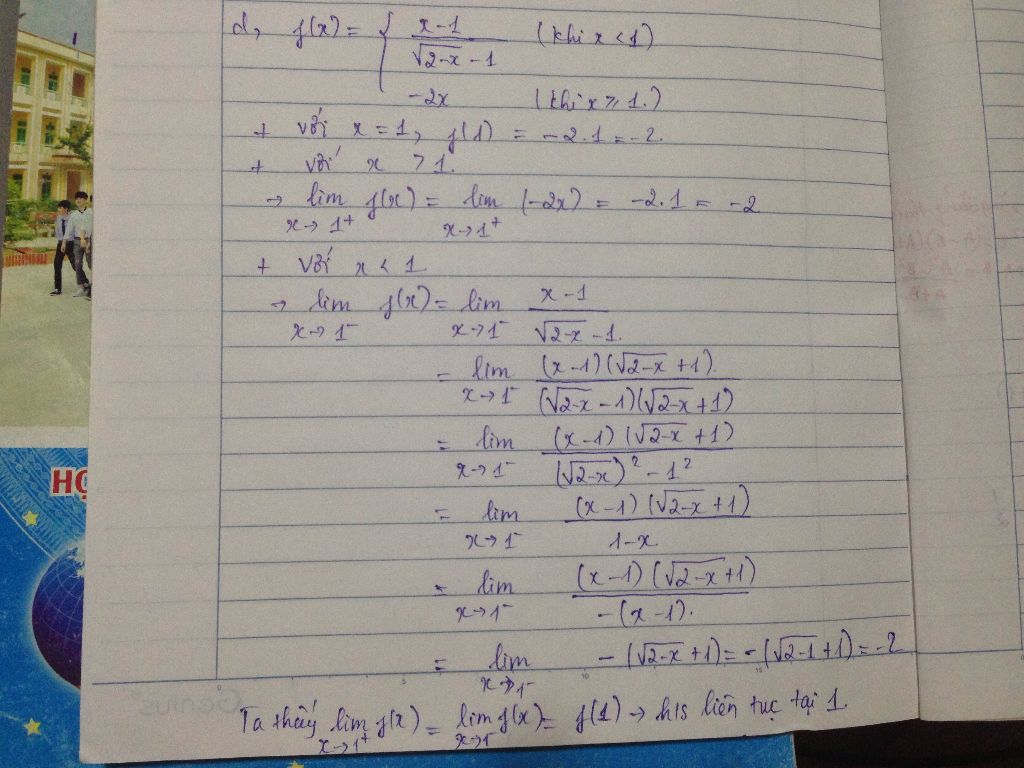 d, f(x) = { x-1 / √2-x - 1 (khi x < 1)
-2x (khi x ≥ 1.)
+ với x = 1, f(1) = -2.1 = -2.
+ với x > 1.
→ lim x→1⁺ f(x) = lim x→1⁺ (-2x) = -2.1 = -2
+ với x < 1
→ lim x→1⁻ f(x) = lim x→1⁻ x-1 / √2-x - 1.
= lim x→1⁻ (x-1)(√2-x + 1). / (√2-x - 1)(√2-x + 1)
= lim x→1⁻ (x-1)(√2-x + 1) / (√2-x)² - 1²
= lim x→1⁻ (x-1)(√2-x + 1) / 1-x
= lim x→1⁻ (x-1)(√2-x + 1) / -(x-1).
= lim x→1⁻ -(√2-x + 1) = -(√2-1 + 1) = -2
Ta thấy lim x→1⁺ f(x) = lim x→1⁻ f(x) = f(1) → h/s liên tục tại 1.
HỌ